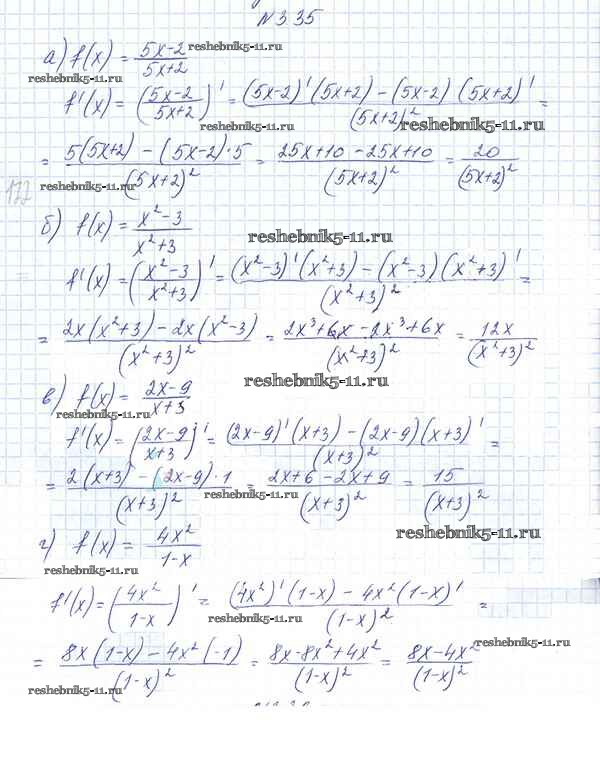 №335
а) f(x) = (5x-2)/(5x+2)
reshebnik5-11.ru
reshebnik5-11.ru
f'(x) = ((5x-2)/(5x+2))' = ((5x-2)'(5x+2) - (5x-2)(5x+2)')/(5x+2)² =
reshebnik5-11.ru
reshebnik5-11.ru
= (5(5x+2) - (5x-2)·5)/(5x+2)² = (25x+10-25x+10)/(5x+2)² = 20/(5x+2)²
reshebnik5-11.ru
177
б) f(x) = (x²-3)/(x²+3)
reshebnik5-11.ru
f'(x) = ((x²-3)/(x²+3))' = ((x²-3)'(x²+3) - (x²-3)(x²+3)')/(x²+3)² =
= (2x(x²+3) - 2x(x²-3))/(x²+3)² = (2x³+6x-2x³+6x)/(x²+3)² = 12x/(x²+3)²
reshebnik5-11.ru
в) f(x) = (2x-9)/(x+3)
reshebnik5-11.ru
f'(x) = ((2x-9)/(x+3))' = ((2x-9)'(x+3) - (2x-9)(x+3)')/(x+3)² =
= (2(x+3) - (2x-9)·1)/(x+3)² = (2x+6-2x+9)/(x+3)² = 15/(x+3)²
reshebnik5-11.ru
г) f(x) = 4x²/(1-x)
reshebnik5-11.ru
f'(x) = (4x²/(1-x))' = ((4x²)'(1-x) - 4x²(1-x)')/(1-x)² =
reshebnik5-11.ru
reshebnik5-11.ru
= (8x(1-x) - 4x²(-1))/(1-x)² = (8x-8x²+4x²)/(1-x)² = (8x-4x²)/(1-x)²
reshebnik5-11.ru
reshebnik5-11.ru